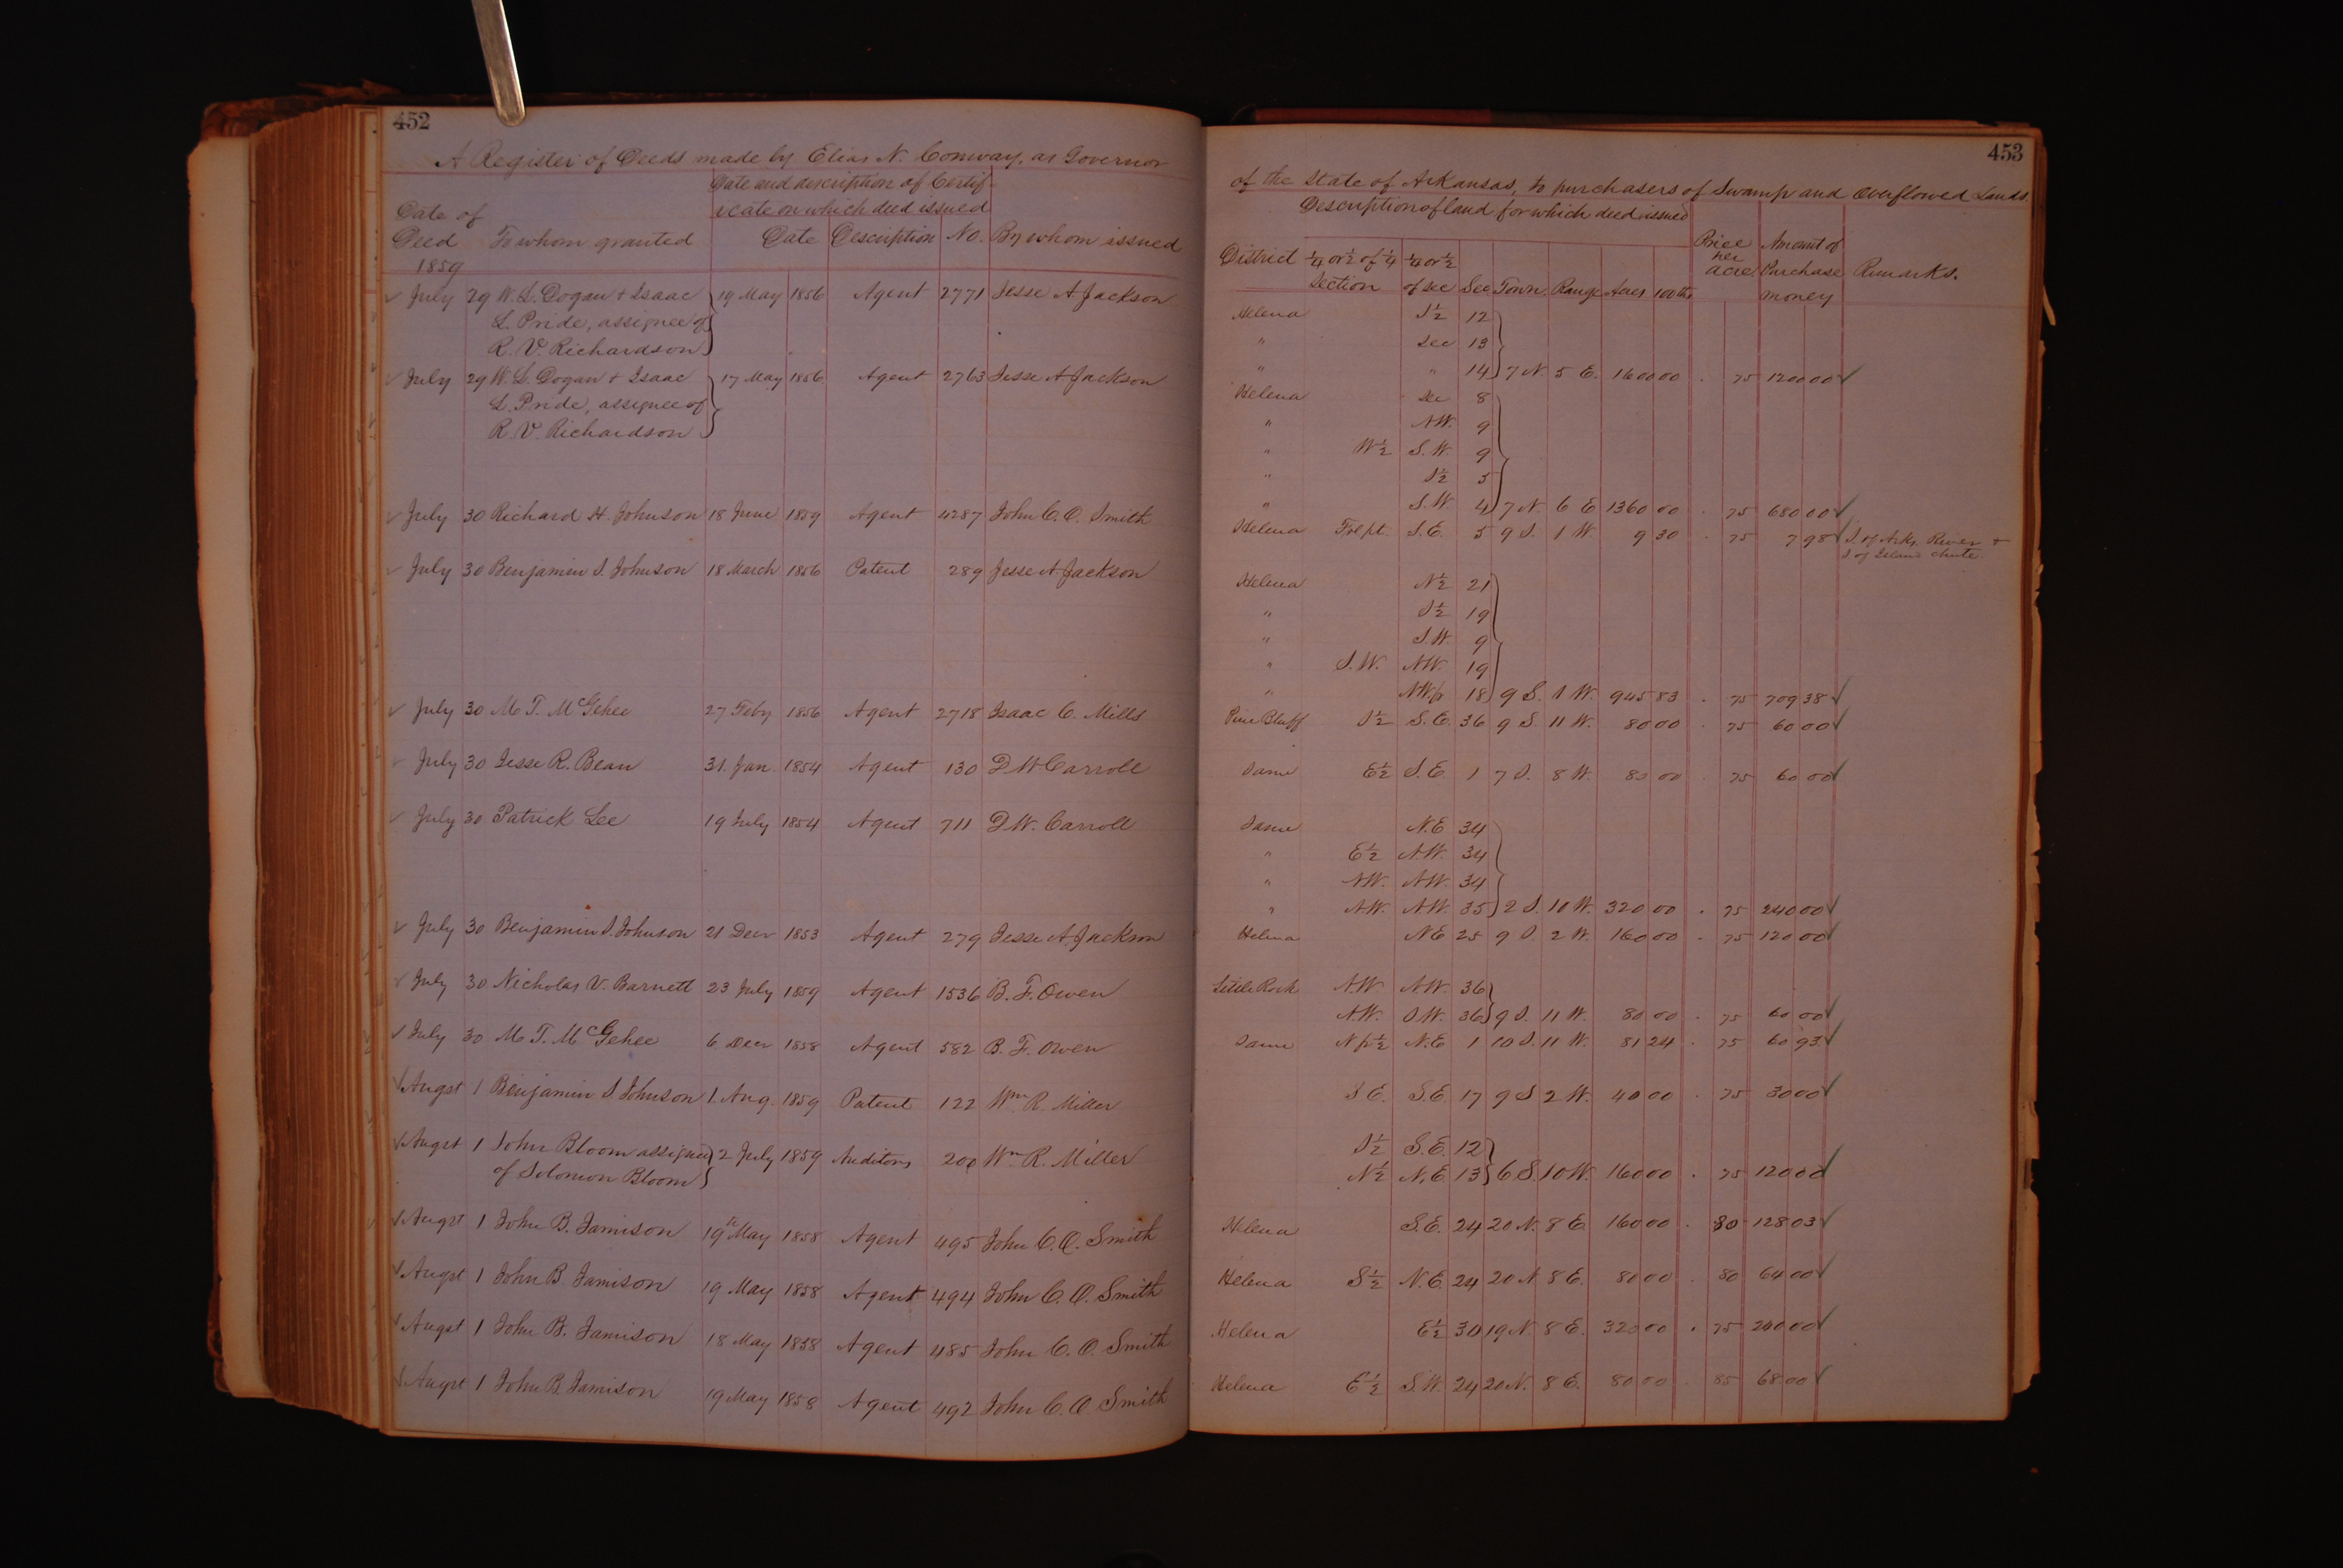 452
A Register of Deeds made by Elias N. Conway, as Governor
Date and description of Certif-
icate on which deed issued
Date of
Deed To whom granted Date Description No. By whom issued
1859
July 29 W. L. Dogan + Isaac 19 May 1856 Agent 2771 Jesse A. Jackson
L. Pride, assignee of
R. V. Richardson
July 29 W. L. Dogan + Isaac 17 May 1856 Agent 2763 Jesse A Jackson
L. Pride, assignee of
R. V. Richardson
July 30 Richard H. Johnson 18 June 1859 Agent 4287 John C. O. Smith
July 30 Benjamin S. Johnson 18 March 1856 Patent 289 Jesse A Jackson
July 30 M. T. McGehee 27 Feby 1856 Agent 2718 Isaac C. Mills
July 30 Jesse R. Bean 31. Jan. 1854 Agent 130 D W Carroll
July 30 Patrick Lee 19 July 1854 Agent 711 D. W. Carroll
July 30 Benjamin S. Johnson 21 Decr 1853 Agent 279 Jesse A. Jackson
July 30 Nicholas V. Barnett 23 July 1859 Agent 1536 B. F. Owen
July 30 M. T. McGehee 6 Decr 1858 Agent 582 B. F. Owen
Augst 1 Benjamin S. Johnson 1. Aug. 1859 Patent 122 Wm R. Miller
Augst 1 John Bloom assignee 2 July 1859 Auditors 200 Wm R. Miller
of Solomon Bloom
Augst 1 John B. Jamison 19th May 1858 Agent 495 John C. O. Smith
Augst 1 John B. Jamison 19 May 1858 Agent 494 John C. O. Smith
Augst 1 John B. Jamison 18 May 1858 Agent 485 John C. O. Smith
Augst 1 John B. Jamison 19 May 1858 Agent 492 John C. O. Smith
453
of the State of Arkansas, to purchasers of Swamp and Overflowed Lands
Description of land for which deed issued
Price Amount of
District ¼ or ½ of ¼ ¼ or ½ per
Section of Sec Sec Town. Range Acres 100ths acre. Purchase Remarks.
money
Helena S½ 12
" Sec 13
" " 14 7 N. 5 E. 1600 00 . 75 1200 00
Helena Sec 8
" N.W. 9
" W½ S.W. 9
" S½ 5
" S.W. 4 7 N. 6 E 1360 00 . 75 680 00
Helena Frl pt. S.E. 5 9 S. 1 W. 9 30 . 75 7 98 S. of Arks. River +
S of Island chute.
Helena N½ 21
" S½ 19
" S.W. 9
" S.W. N.W. 19
" N.W. fr 18 9 S. 1 W. 945 83 . 75 709 38
Pine Bluff S½ S.E. 36 9 S. 11 W. 80 00 . 75 60 00
Same E½ S.E. 1 7 S. 8 W. 80 00 . 75 60 00
Same N.E 34
" E½ N.W. 34
" N.W. N.W. 34
" N.W. N.W. 35 2 S. 10 W. 320 00 . 75 240 00
Helena N.E 25 9 S. 2 W. 160 00 . 75 120 00
Little Rock N.W. N.W. 36
N.W. S.W. 36 9 S. 11 W. 80 00 . 75 60 00
Same N fr ½ N.E 1 10 S. 11 W. 81 24 . 75 60 93
S E. S.E. 17 9 S 2 W. 40 00 . 75 30 00
S½ S.E. 12
N½ N.E. 13 6 S. 10 W. 160 00 . 75 120 00
Helena S.E. 24 20 N. 8 E. 160 00 . 80 128 03
Helena S½ N.E. 24 20 N 8 E. 80 00 . 80 64 00
Helena E½ 30 19 N. 8 E. 320 00 . 75 240 00
Helena E½ S.W. 24 20 N. 8 E. 80 00 . 85 68 00